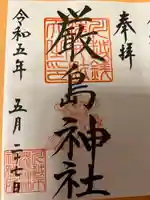 奉拝
厳島神社
令和五年
五月二十七日